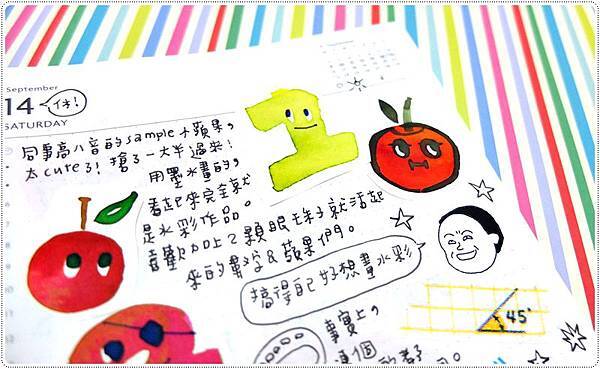 September
14
仆!
SATURDAY
同事高八音的sample小蘋果,
太cute了!搶了一大半過來!
用墨水畫的,
看起來完全就
是水彩作品。
喜歡加上2顆眼珠子就活起
來的數字&蘋果們。
搞得自己好想畫水彩
45°
事實上,
這個